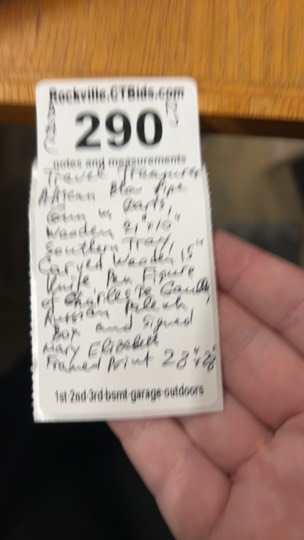 Rockville.CTBids.com
290
notes and measurements
Travel Treasures
African Blow Pipe
Gun w/ Darts,
Wooden 21"x10"
Southern Tray,
Carved Wooden 15"
Knife Pen Figure
of Charles De Gaulle,
Russian
Box and Signed
Mary Elizabeth
Framed Print 28"x28"
1st 2nd 3rd bsmt garage outdoors